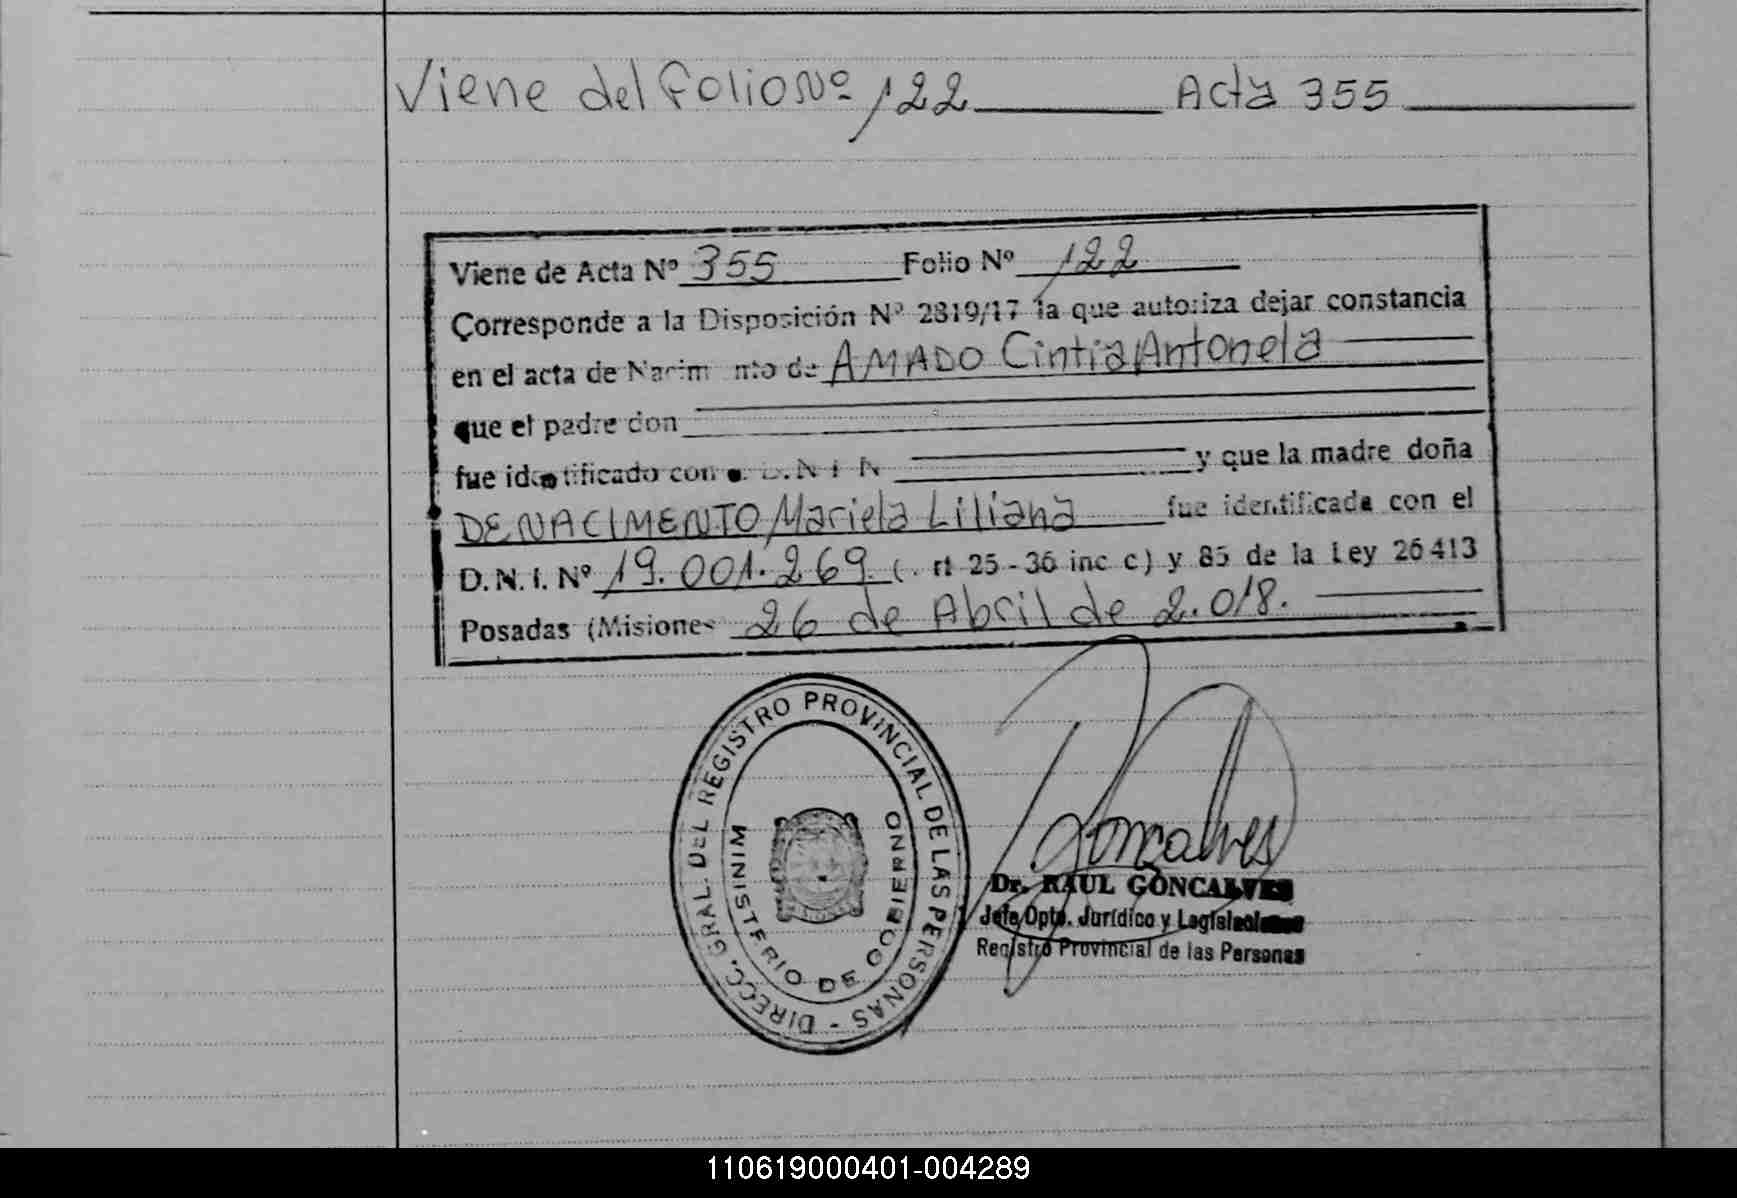 Viene del Folio Nº 122 Acta 355
Viene de Acta Nº 355 Folio Nº 122
Corresponde a la Disposición Nº 2819/17 la que autoriza dejar constancia
en el acta de Nacim nto de AMADO Cintia Antonela
que el padre don
fue identificado con D.N I N y que la madre doña
DENACIMENTO, Mariela Liliana fue identificada con el
D.N.I. Nº 19.001.269. ( . rt 25 - 36 inc c) y 85 de la Ley 26413
Posadas (Misiones 26 de Abril de 2.018.
DIRECC. GRAL. DEL REGISTRO PROVINCIAL DE LAS PERSONAS -
MINISTERIO DE GOBIERNO
Goncalves
Dr. RAUL GONCALVES
Jefe Dpto. Jurídico y
Registro Provincial de las Personas
110619000401-004289